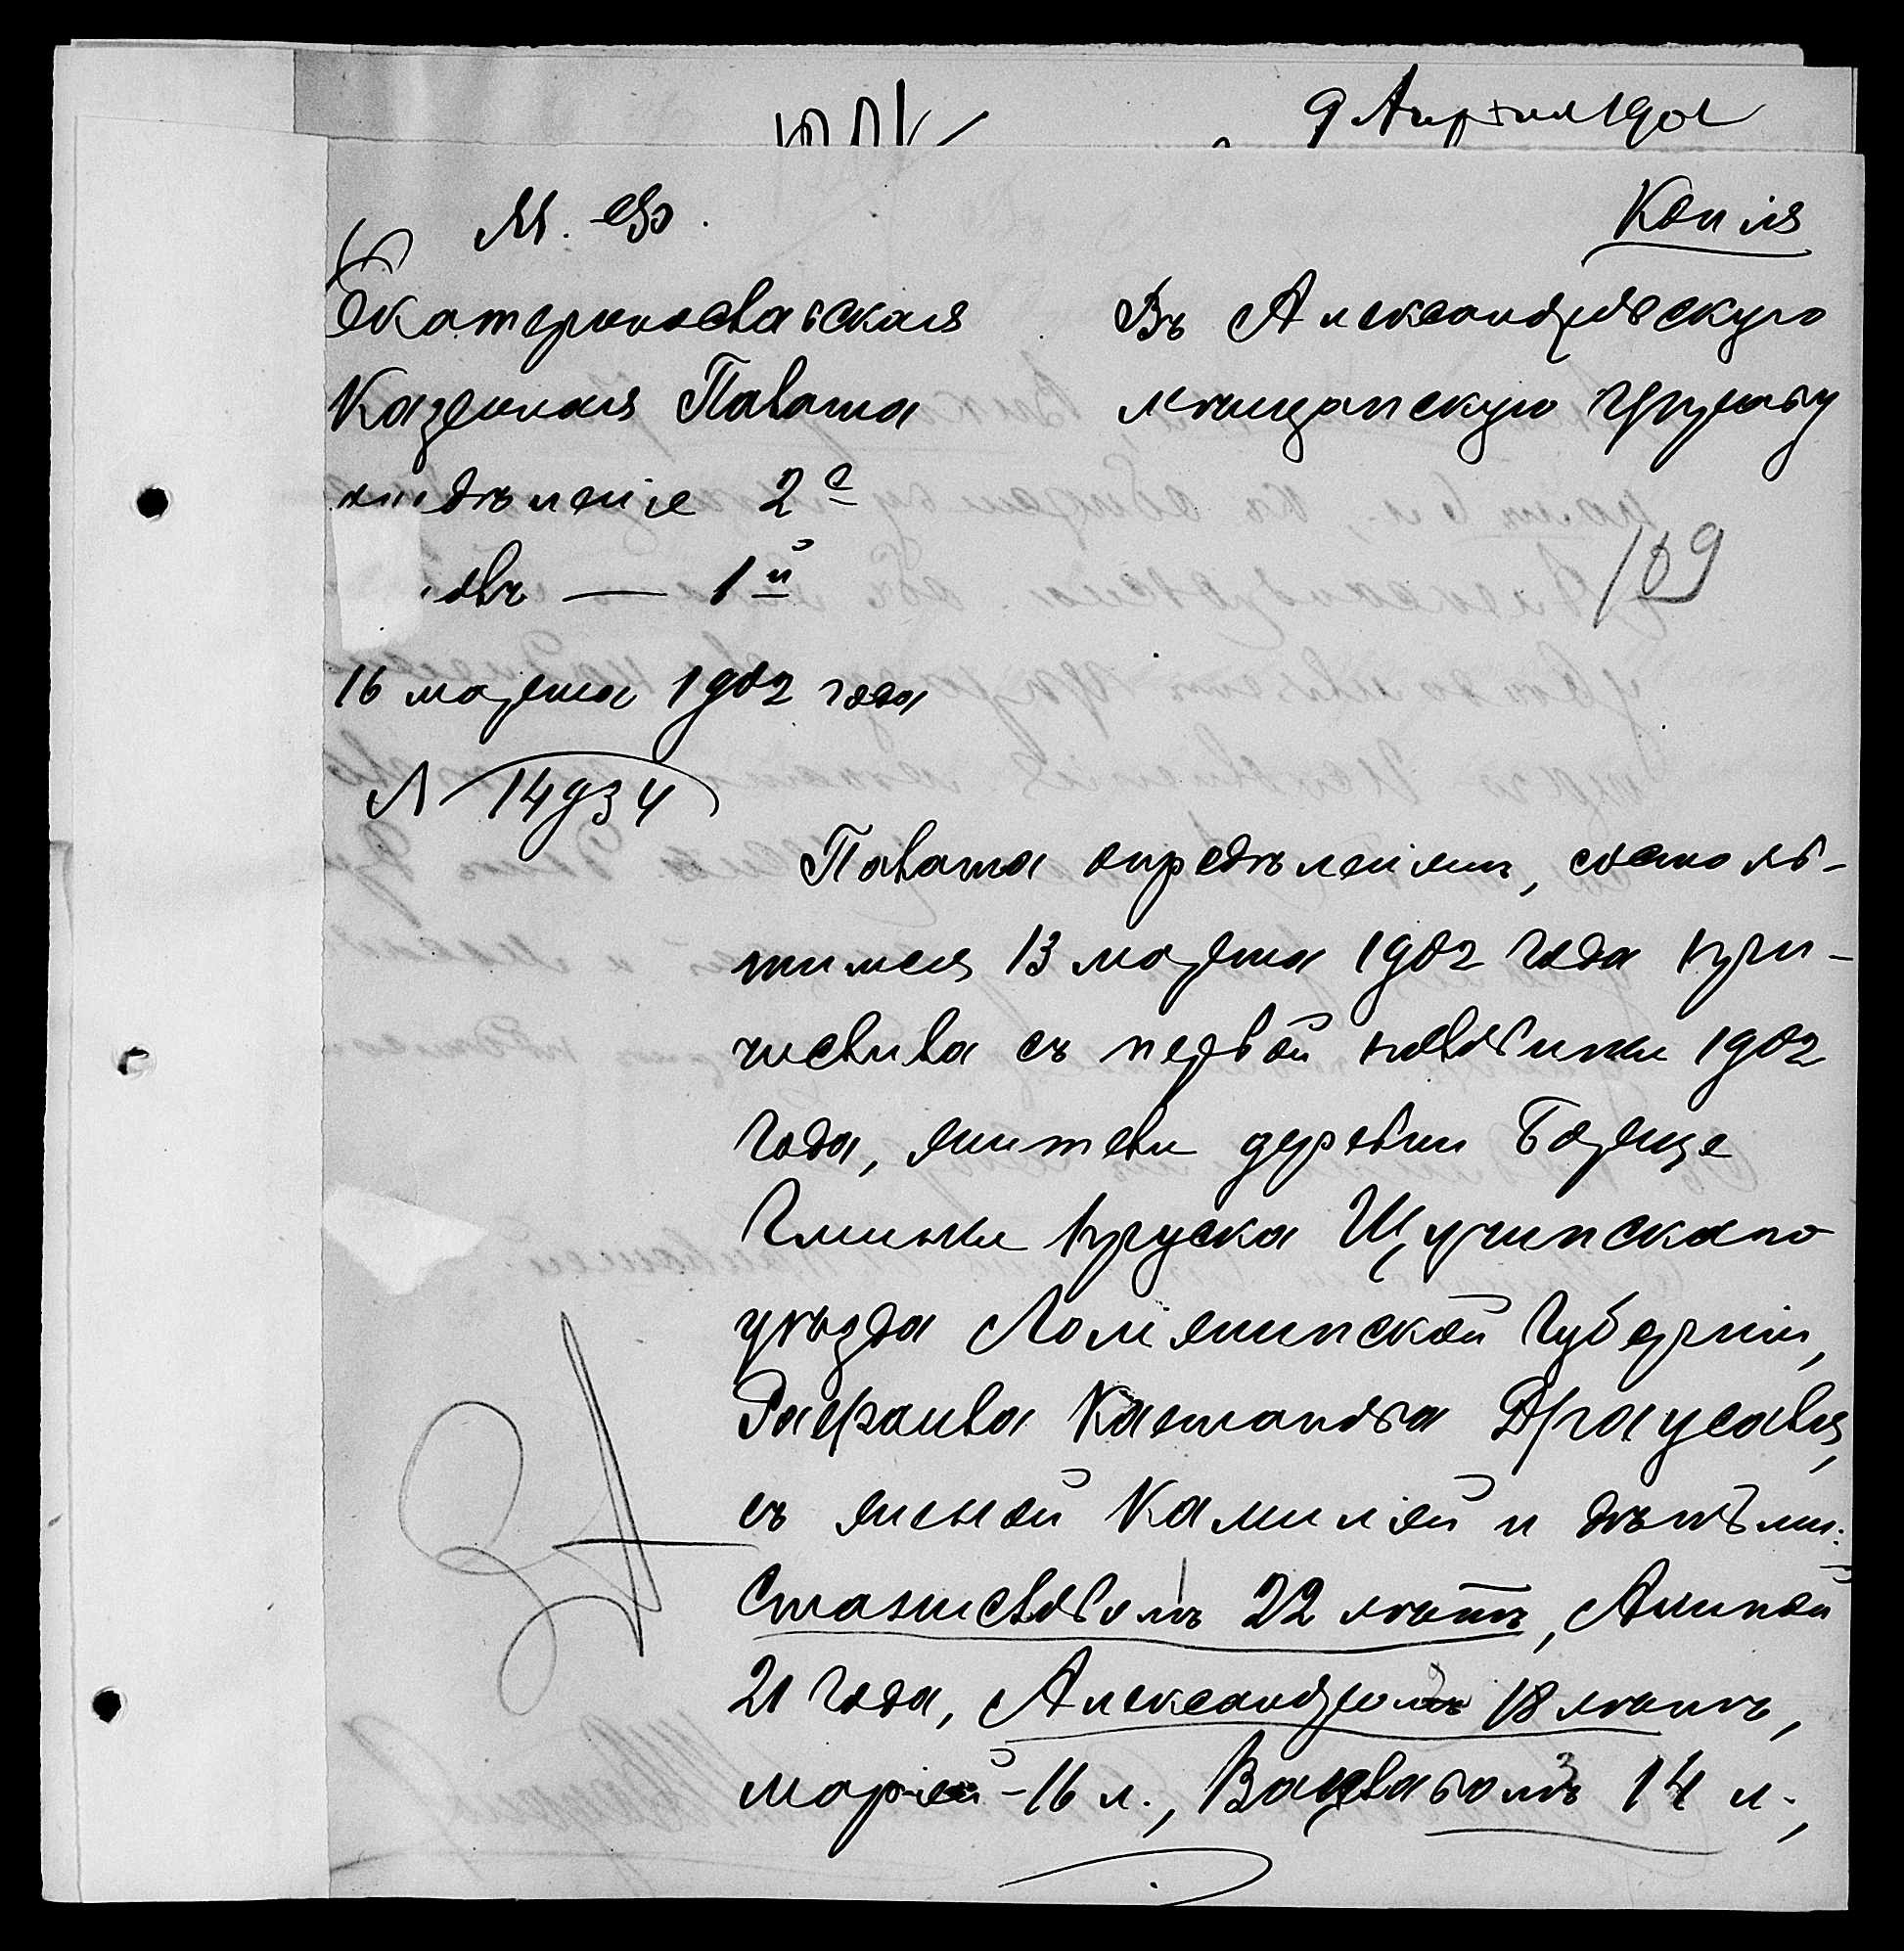 9 Апрѣля 1902
М. Ф.
Копія
Екатеринославская
Казенная Палата
Отдѣленіе 2е
Столъ — 1й
16 марта 1902 года
№ 14934
Въ Александровскую
мѣщанскую Управу
109
Палата опредѣленіемъ, состояв-
шимся 13 марта 1902 года при-
числила съ первой половины 1902
года, жителя деревни Бартце
Глинки Прусска Щучинскаго
уѣзда Ломжинской губерніи,
Рафаила Каетанова
съ женой Камиліей и дѣтьми:
Станиславомъ 22 лѣтъ, Алиной
21 года, Александромъ 18 лѣтъ,
Маріей - 16 л., Вацлавомъ 14 л.,